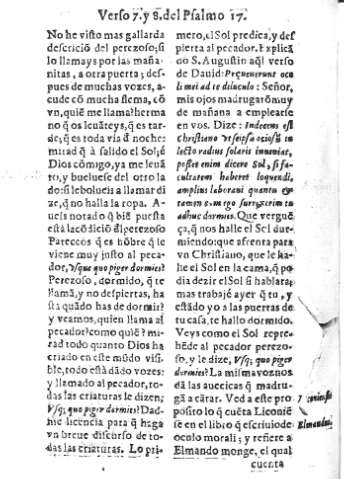 Verso 7. y 8. del Psalmo 17.
No he visto mas gallarda
descrició del perezoso; si
lo llamays por las maña-
nitas, a otra puerta; des-
pues de muchas vozes, a-
cude cō mucha flema, cō
vn, quié me llama? herma
no q̄ os leuāteys, q̄ es tar-
de, q̄ es toda via d̄ noche:
mirad q̄ à salido el Sol; ē
Dios cómigo, ya me leuā
to, y bueluese del otro la
do: si lebolueis a llamar di
ze, q̄ no halla la ropa. A-
ueis notado q̄ biē puesta
està la códició d̄l perezoso
Pareceos q̄ es hōbre q̄ le
viene muy justo al peca-
dor, vsque quo piger dormies?
Perezoso, dormido, q̄ te
llamā, y no despiertas, ha
sta quádo has de dormir?
y veamos, quien llama al
pecador? como quié? mi-
rad todo quanto Dios ha
criado en este mūdo visi-
ble, todo està dādo vozes:
y llamado al pecador, to-
das criaturas le dizen;
Vsq; quo piger dormies? Dad-
me licencia para q̄ haga
vn breue discurso de to-
das las criaturas. Lo pri-
mero, el Sol predica, y des
pierta al pecador. Explicā
do S. Augustin aq̄l verso
de Dauid: Preuenerunt ocu
li mei ad te diluculo: Señor,
mis ojos madrugaró muy
de mañana a emplearse
en vos. Dize: Indecens est
Christiano
lecto radius solaris inueniat,
posset enim dicere Sol, si fa-
cultatem haberet loquendi,
amplius laboraui
tamen
adhuc dormis. Que verguē
ça, q̄ nos halle el Sol dur-
miendo: que afrenta para
vn Christiano, que le ha-
lle el Sol en la cama, q̄ po
dia dezir el Sol si hablara:
mas trabajé ayer q̄ tu, y
estādo yo a las puertas de
tu casa, te hallo dormido.
Veys como el Sol repre-
hēde al pecador perezo-
so, y le dize, Vsq; quo piger
dormies? La misma voz nos
dā las auecicas q̄ madru-
gā a cātar. Ved a este pro
posito lo q̄ cuēta Liconié
se en el libro q̄ escriuio de
oculo morali; y refiere a
Elmando monge, el qual
Liconiēs.
Elmando
cuenta